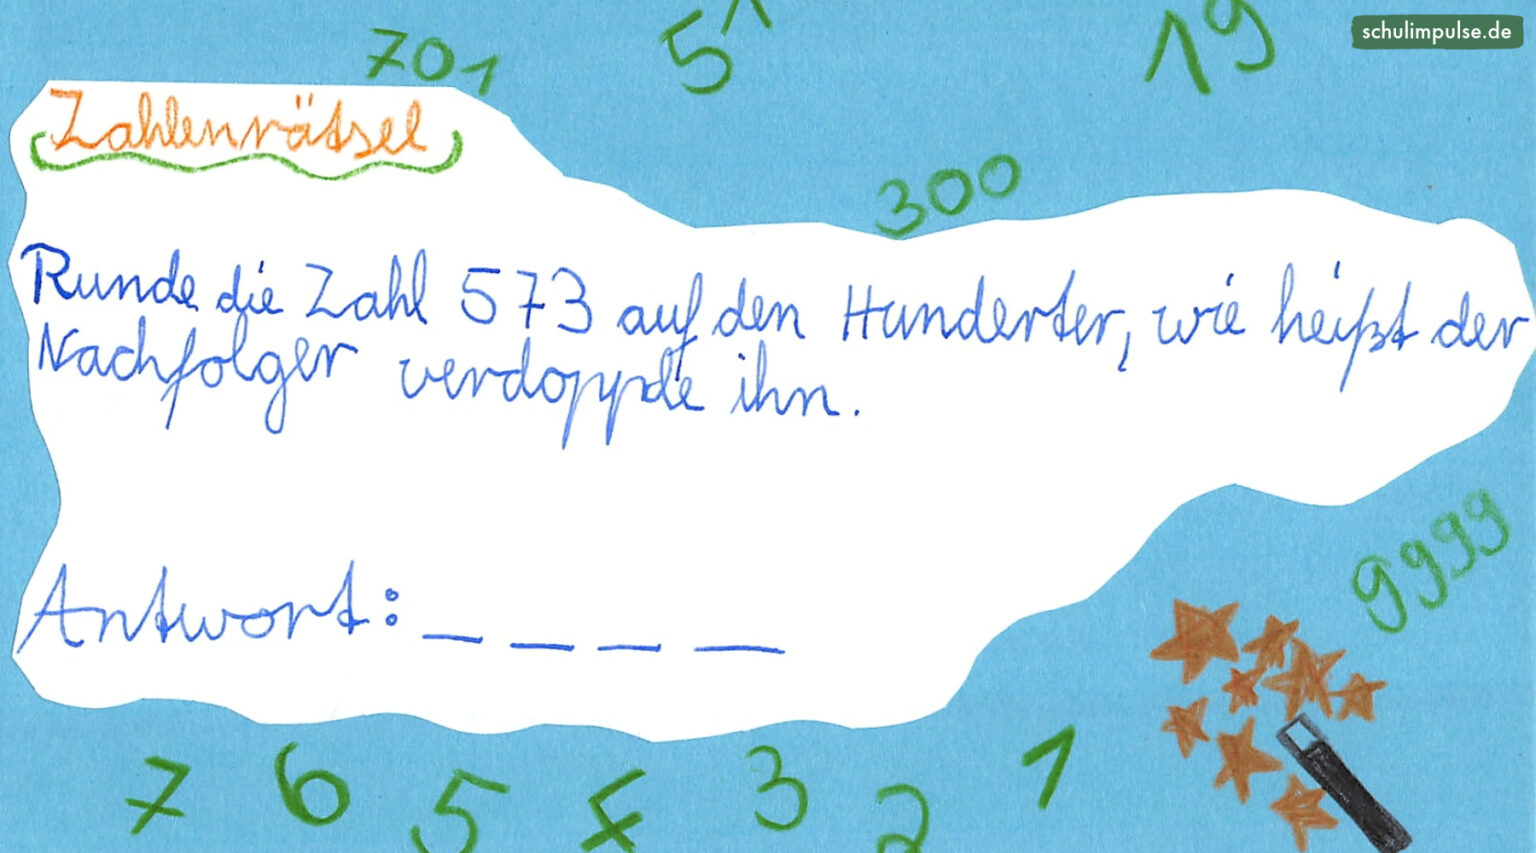 schulimpulse.de
701
51
19
300
Zahlenrätsel
Runde die Zahl 573 auf den Hunderter, wie heißt der
Nachfolger verdopple ihn.
Antwort: _ _ _ _
9999
7 6 5 4 3 2 1